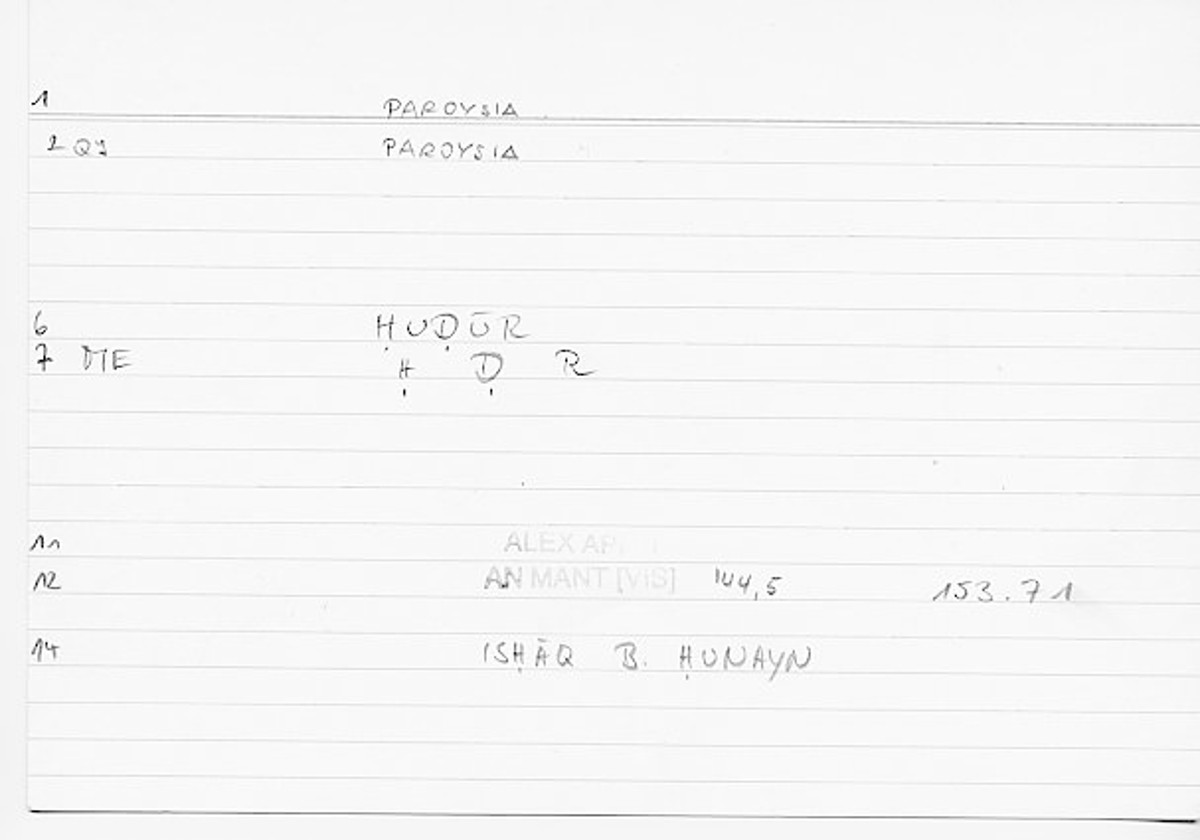 1 PAROYSIA
2 QS PAROYSIA
6 ḤUḌŪR
7 DIE Ḥ Ḍ R
11 ALEX AP
12 AN MANT [VIS] 144,5 153.71
14 ISḤĀQ B. ḤUNAYN